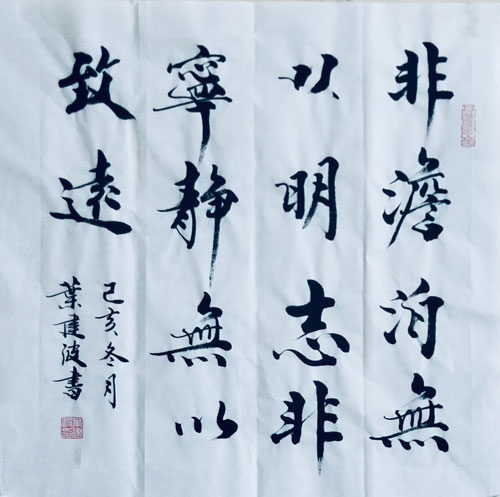 非澹泊無
以明志非
寧静無以
致遠
己亥冬月
葉建波書